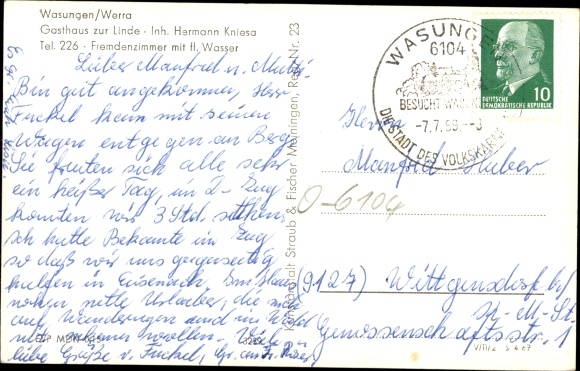 Wasungen/Werra
Gasthaus zur Linde · Inh. Hermann Kniesa
Tel. 226 · Fremdenzimmer mit fl. Wasser
Lieber Manfred u. Mutti.
Bin gut angekommen, Herr
Funkel kam mit seinem
Wagen entgegen an Berg.
Sie freuten sich alle sehr
ein heißer Tag, im D-Zug
konnten wir 3 Std. stehen
ich hatte Bekannte im Zug
so daß wir uns gegenseitig
halfen in Eisenach.
nette Urlauber, die
auf Wanderungen und im Wald
wollen. Viele
liebe Grüße v. Funkel,
Kunstanstalt Straub & Fischer, Meiningen, Reg.-Nr. 23
WASUNGEN
6104
BESUCHT
-7.7.69.--8
DIE STADT DES VOLKSKARNEVALS
10
DEUTSCHE
DEMOKRATISCHE REPUBLIK
Herrn
Manfred Huber
O-6104
(9127) Wittgensdorf b/
K.-M.-St.
Genossenschaftsstr. 1
V/11/2 S 4 67